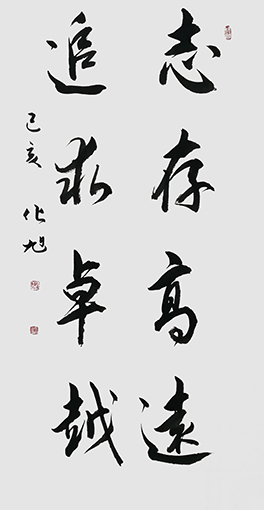 志存高遠
追求卓越
己亥
化旭